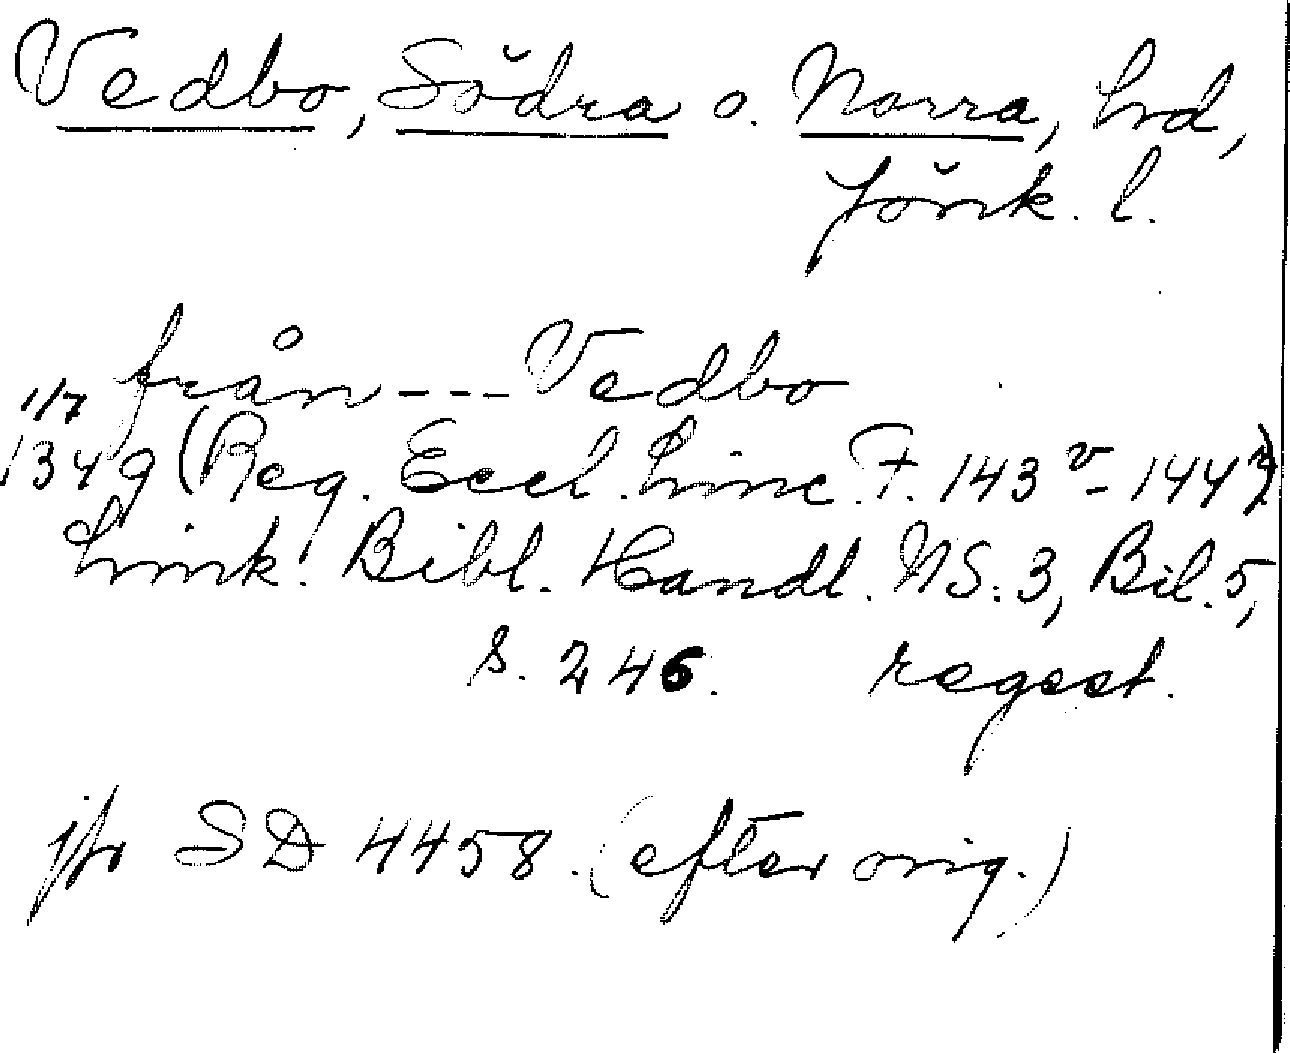 Vedbo, Södra o. Norra, hrd,
Jönk. l.
från --- Vedbo
1/7
1349 (Reg. Eccl. Linc. F. 143v - 144v)
Link. Bibl. Handl. NS. 3, Bil. 5,
s. 246. regest.
jfr SD 4458. (efter orig.)